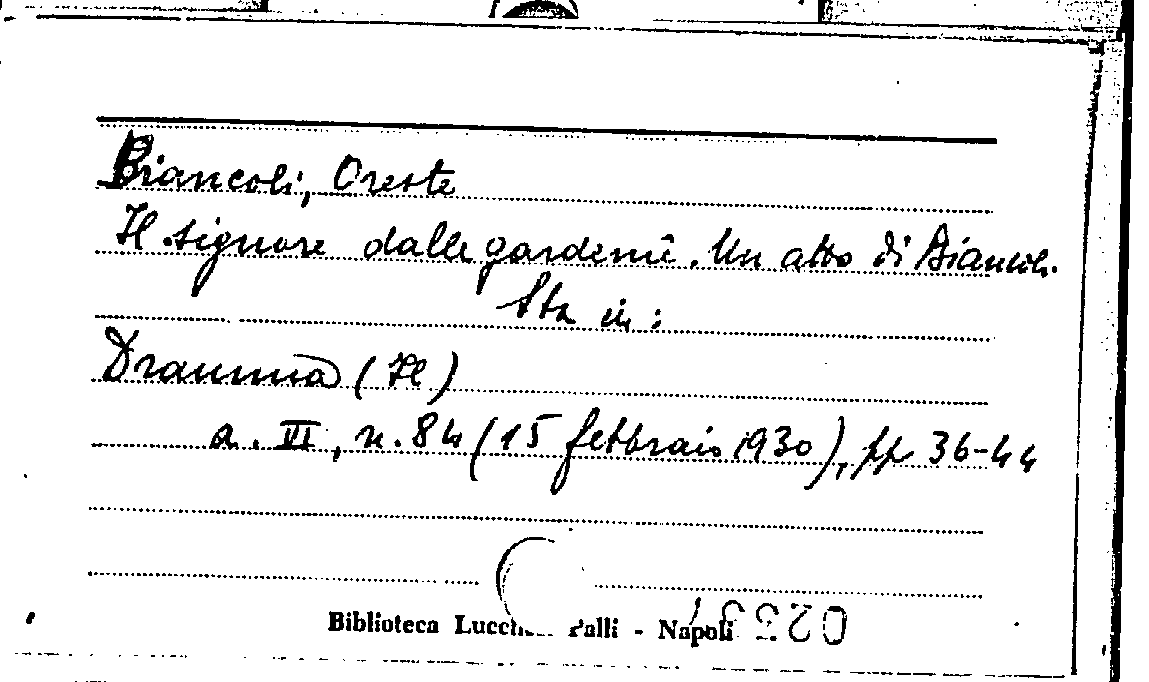 Biancoli, Oreste
Il signore dalle gardenie. Un atto di Biancoli.
Sta in:
Dramma (Il)
a. VI, n. 84 (15 febbraio 1930), pp. 36-44
Biblioteca Lucch... Palli - Napoli